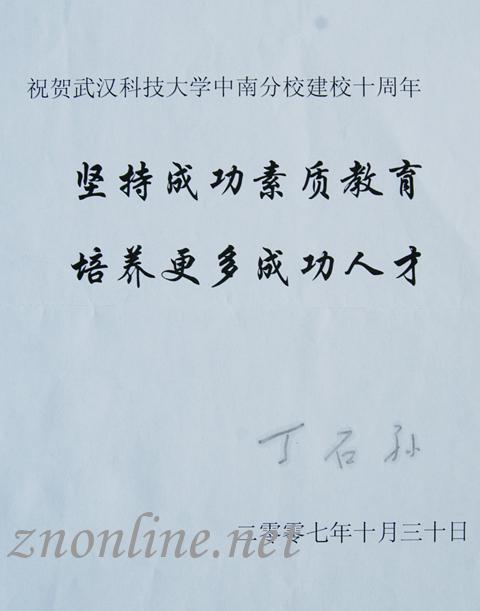 祝贺武汉科技大学中南分校建校十周年
坚持成功素质教育
培养更多成功人才
丁石孙
二零零七年十月三十日
znonline.net